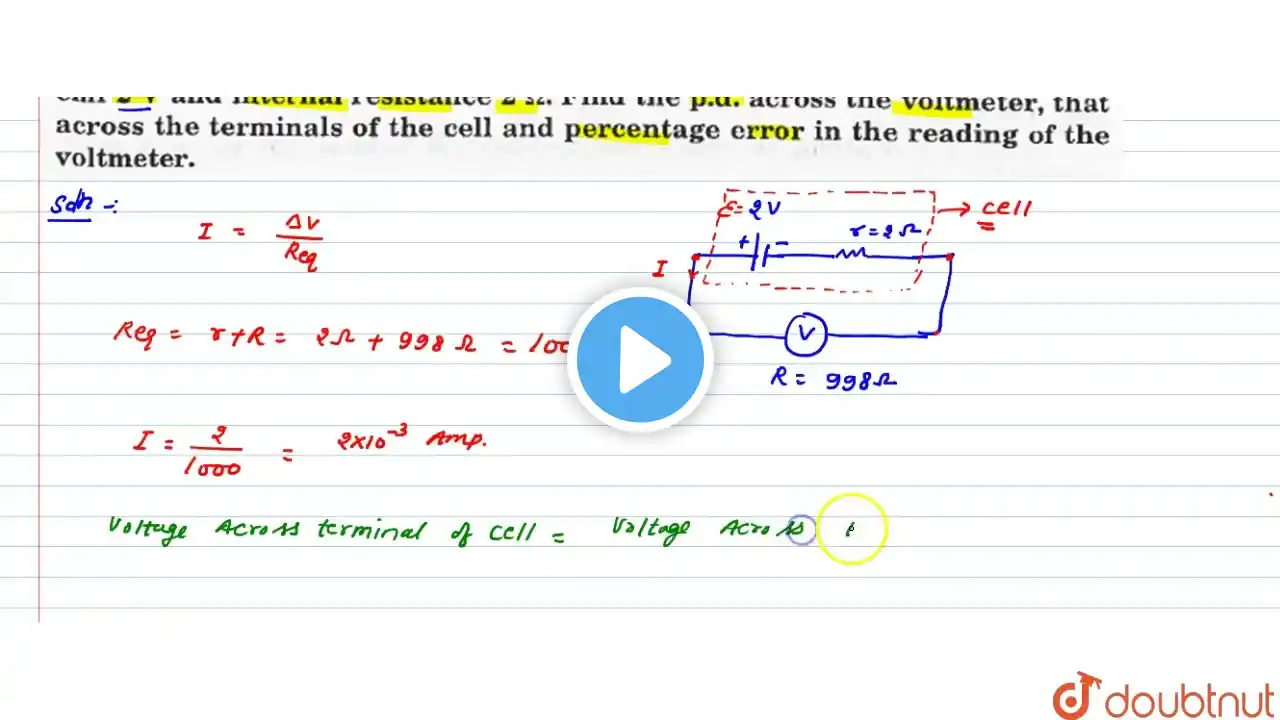 emf 2 V and internal resistance 2 Ω. Find the p.d. across the voltmeter, that
across the terminals of the cell and percentage error in the reading of the
voltmeter.
Soln :-
I = ΔV / Req
ε = 2V
→ cell
+ -
r = 2Ω
I
Req = r + R = 2Ω + 998 Ω = 100
V
R = 998Ω
I = 2 / 1000 = 2×10⁻³ Amp.
Voltage Across terminal of cell = Voltage Across
doubtnut